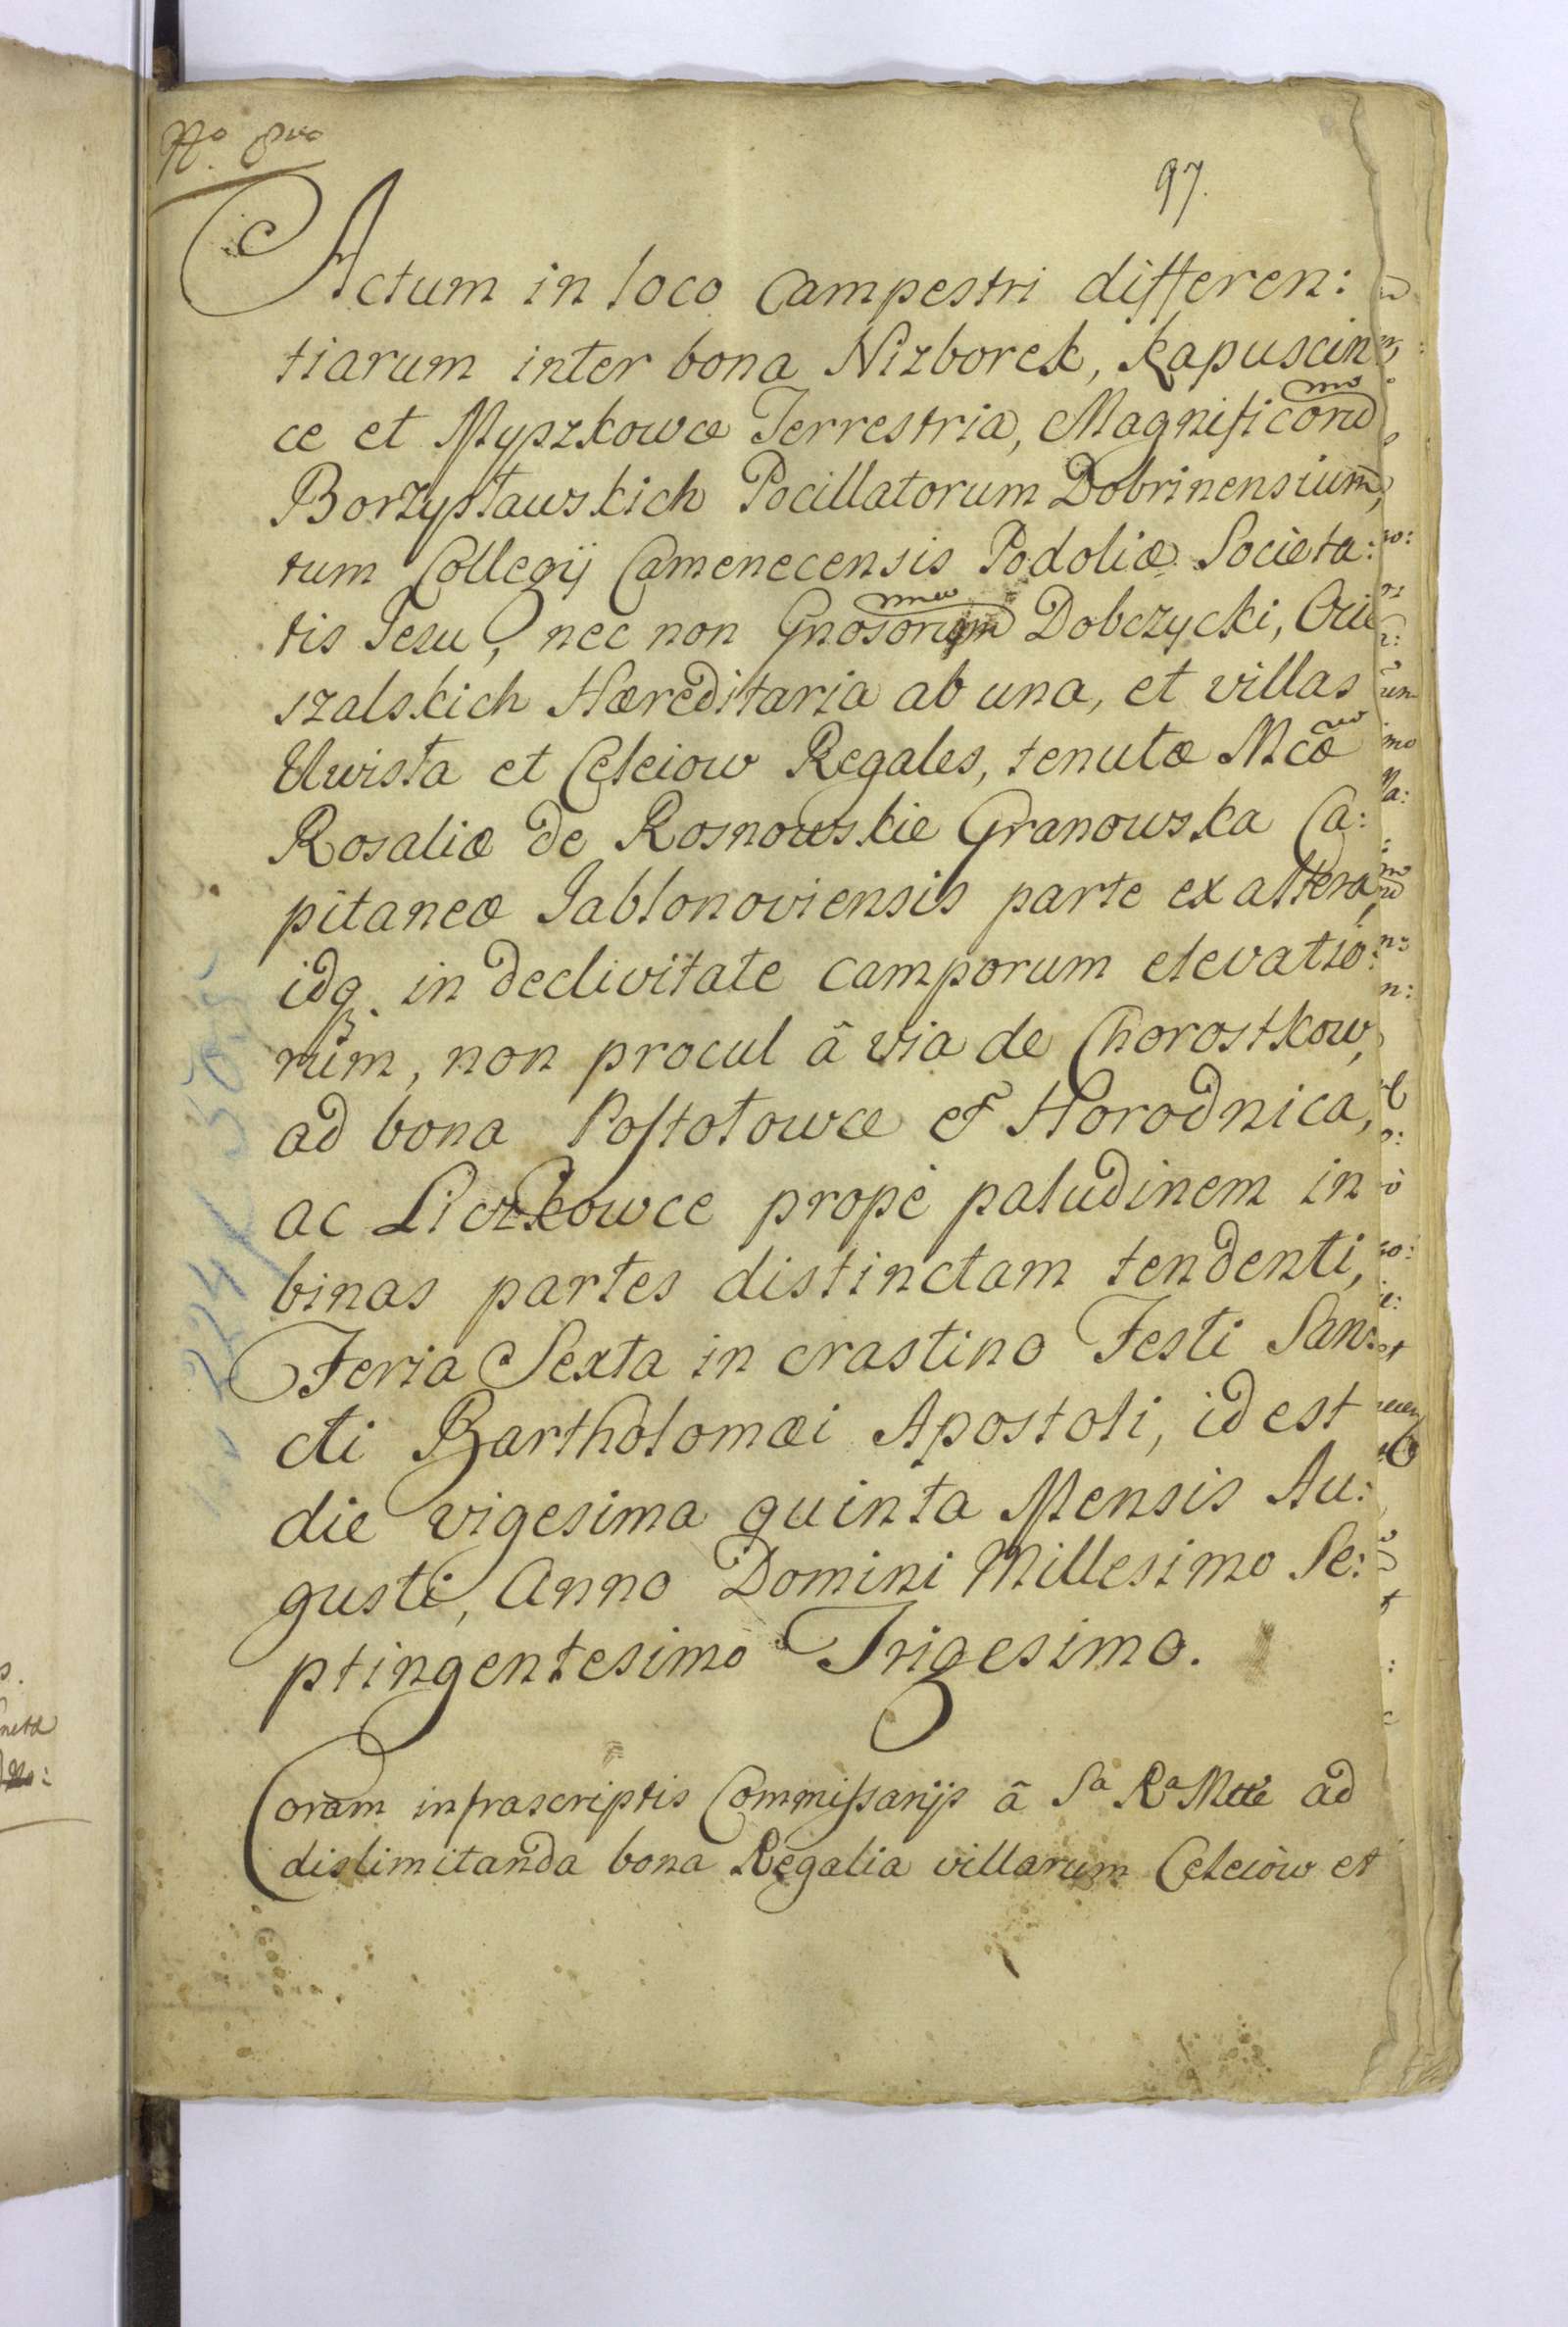 No. 8vo
97.
Actum in loco Campestri differen:
tiarum inter bona Nizborek, Kapuscin
ce et Myszkowce Terrestria, Magnificoru
Borzysławskich Pocillatorum Dobrinensium,
tum Collegij Camenecensis Podoliæ Societa:
tis Jesu, nec non Gnosorum Dobczycki,
szalskich Hæreditaria ab una, et villas
Uwisła et Celeiow Regales, tenutæ Mcæ
Rosaliæ de Rosnowskie Granowska Ca:
pitaneæ Jabłonoviensis parte ex altera,
idq in declivitate camporum elevatio:
rum, non procul â via de Chorostkow,
ad bona Postołowce et Horodnica,
ac Liczkowce propè paludinem in
binas partes distinctam tendenti,
Feria Sexta in crastino Festi San:
cti Bartholomæi Apostoli, id est
die vigesima quinta Mensis Au:
gusti, Anno Domini Millesimo Se:
ptingentesimo Trigesimo.
Coram infrascriptis Commissarijs â Sa Ra Mtte ad
dislimitanda bona Regalia villarum Celeiow et